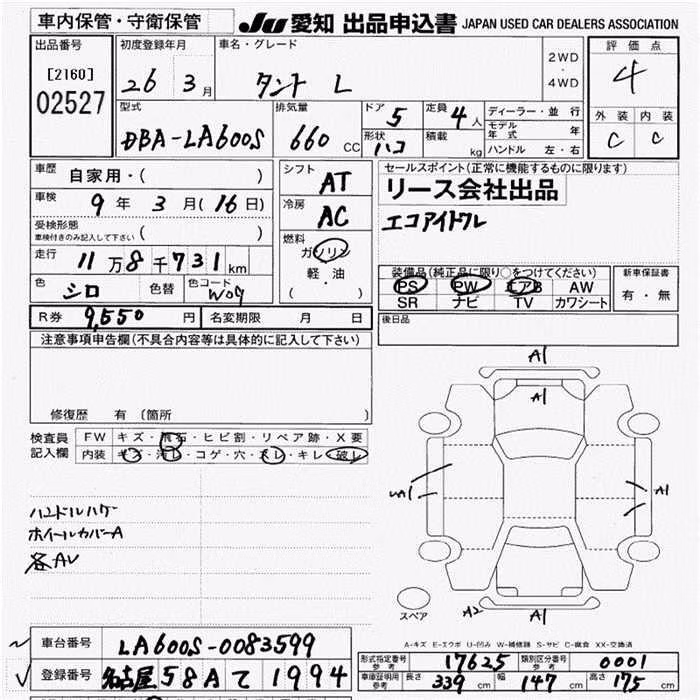 車内保管・守衛保管
JU 愛知 出品申込書 JAPAN USED CAR DEALERS ASSOCIATION
出品番号
[2160]
02527
初度登録年月
26 3月
車名・グレード
タント L
2WD
・
4WD
評価点
4
外装 内装
C C
型式
DBA-LA600S
排気量
660 CC
ドア 5
形状 ハコ
定員 4人
積載 kg
ディーラー・並行
モデル年式 年
ハンドル 左・右
車歴
自家用・( )
車検
9年 3月(16日)
受検形態
車検付きのみ記入して下さい ( )
走行 11万8千731km
色 シロ 色替 色コード W09
シフト AT
冷房 AC
燃料
ガソリン
軽・油
( )
セールスポイント(正常に機能するものに限ります)
リース会社出品
エコアイドル
装備品(純正品に限り○をつけてください)
PS PW エアB AW
SR ナビ TV カワシート
新車保証書
有・無
R券 9,550円 名変期限 月 日
後日品
注意事項申告欄(不具合内容等は具体的に記入して下さい)
修復歴 有 (箇所 )
検査員
記入欄
FW キズ・飛石・ヒビ割・リペア跡・X要
内装 キズ・汚レ・コゲ・穴・スレ・キレ・破レ
ハンドルハゲ
ホイールカバーA
各AU
A1
A1
A1
A1
A1
A2 A1
スペア
A-キズ E-エクボ U-凹み W-補修跡 S-サビ C-腐食 XX-交換済
車台番号 LA600S-0083599
登録番号 名古屋58Aて1994
形式指定番号 参考 17625 類別区分番号 参考 0001
車庫証明用 参考 長さ 339cm 幅 147cm 高さ 175cm